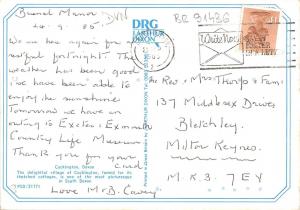 Burnal Manor
DVN
BR 91436
DRG
J. ARTHUR
DIXON
Write Now
9. 85
We are here again for a
restful fortnight. The
weather has been good
We have been able to
enjoy the sunshine
Tomorrow we have an
outing to Exeter: Exmouth
Country Life Museum
Thank you for your
card
Love Mr B. Casey
The Rev, Mrs Thorp & Fam:
137 Middlesex Drive,
Bletchley,
Milton Keynes
M.K.3. 7EY
Cockington, Devon
The delightful village of Cockington, famed for its
thatched cottages, is one of the most picturesque
in South Devon